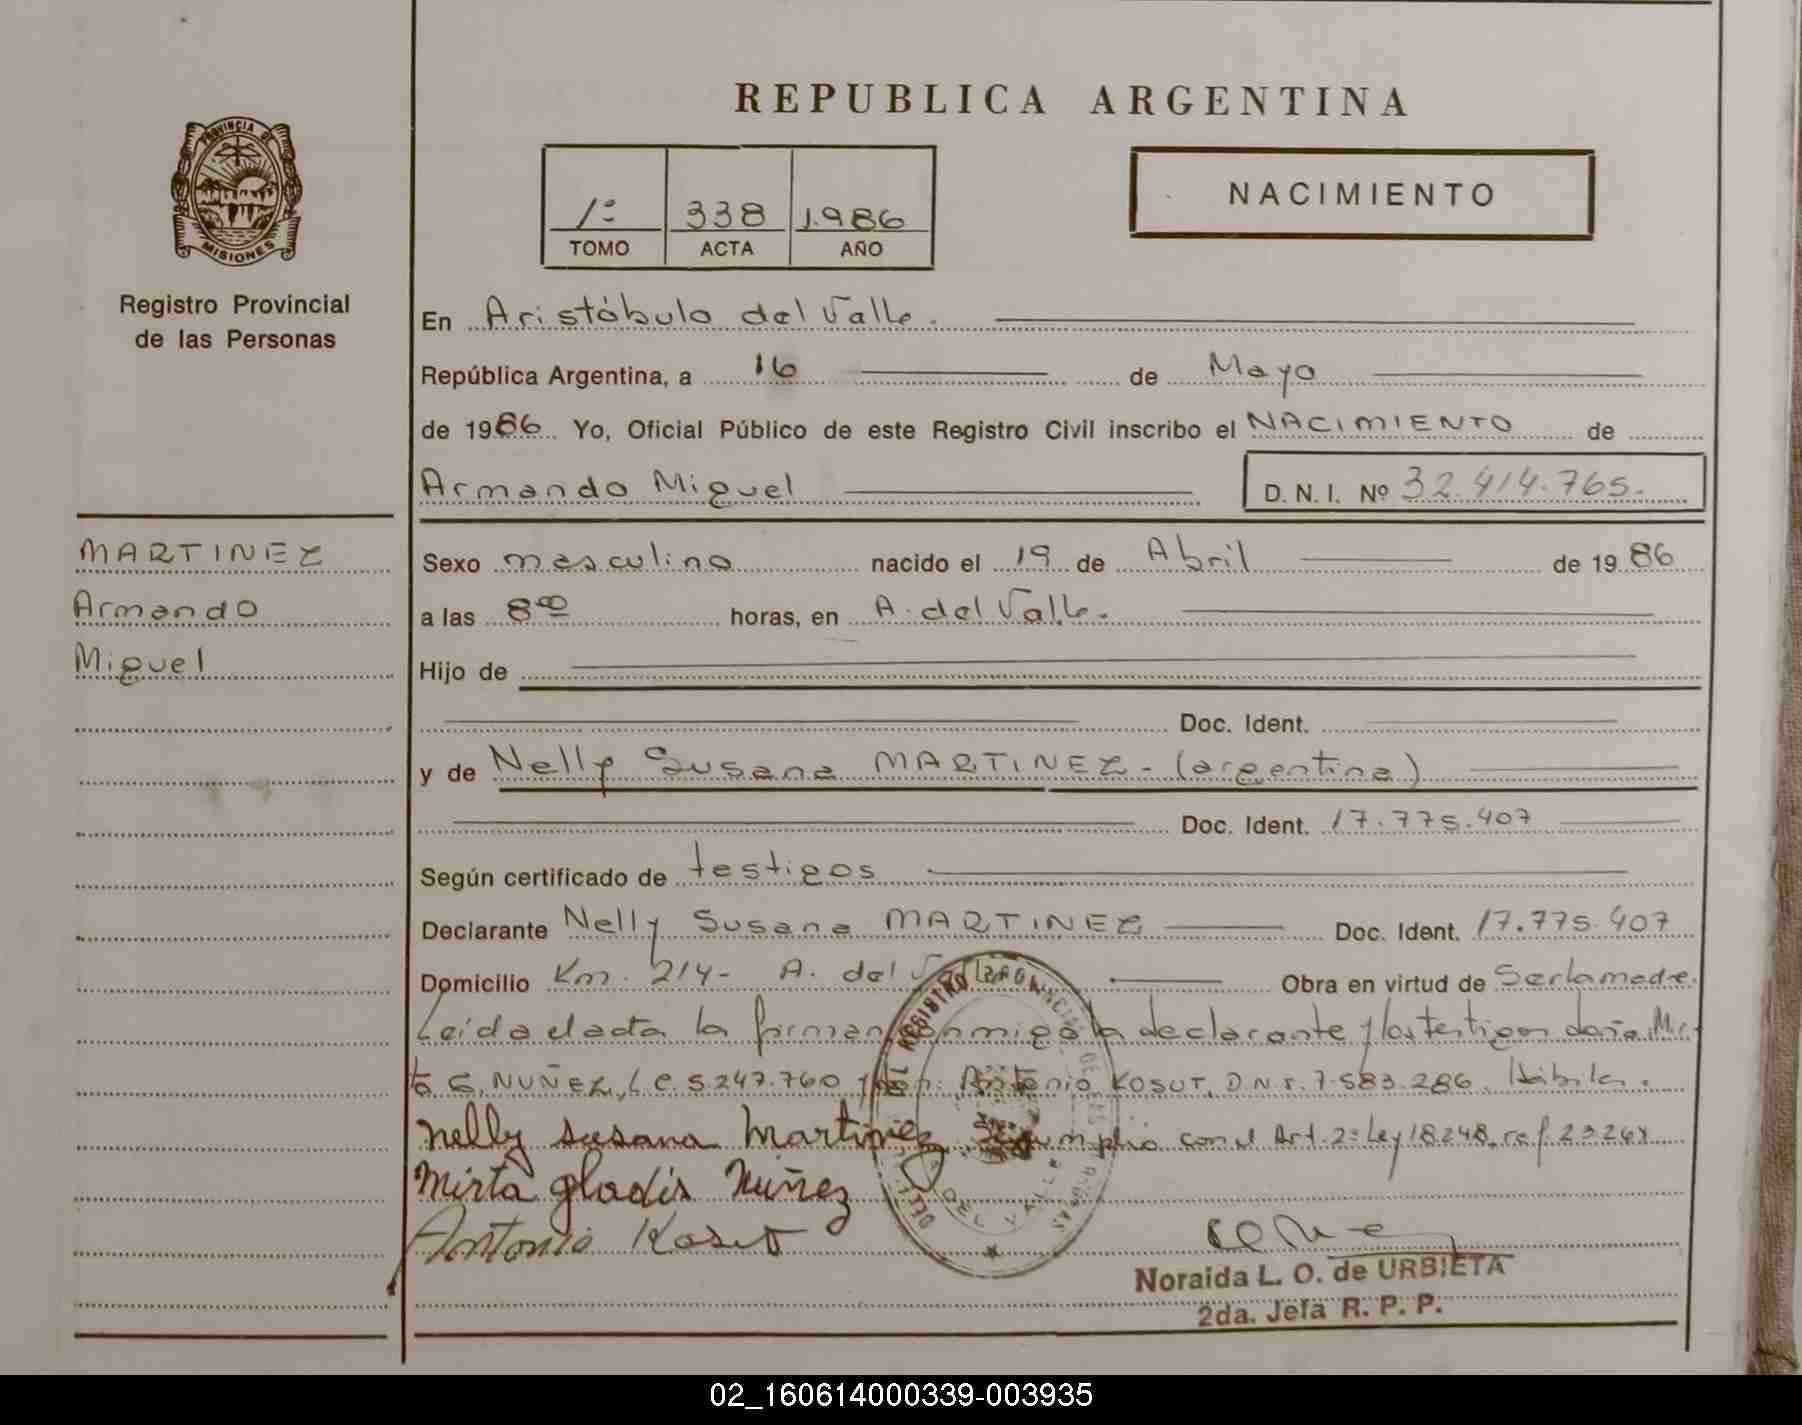 REPUBLICA ARGENTINA
PROVINCIA DE
MISIONES
Registro Provincial
de las Personas
1º 338 1.986
TOMO ACTA AÑO
NACIMIENTO
En Aristóbulo del Valle.
República Argentina, a 16 de Mayo
de 1986 Yo, Oficial Público de este Registro Civil inscribo el NACIMIENTO de
Armando Miguel D. N. I. Nº 32.414.765.
MARTINEZ
Armando
Miguel
Sexo masculino nacido el 19 de Abril de 1986
a las 8 00 horas, en A. del Valle.
Hijo de
Doc. Ident.
y de Nelly Susana MARTINEZ - (argentina)
Doc. Ident. 17.775.407
Según certificado de testigos
Declarante Nelly Susana MARTINEZ Doc. Ident. 17.775.407
Domicilio Km. 214- A. del Obra en virtud de Ser la madre.
Leída el acta la firman conmigo la declarante y los testigos doña Mir-
ta G. NUÑEZ, L.C. 5.247.760 y don: Antonio KOSUT, D.N.I. 7.583.286. Hábiles.
Nelly susana Martinez cumplió con el Art. 2º Ley 18.248, ref. 23264
Mirta gladis Nuñez
Antonio Kosut
Noraida L. O. de URBIETA
2da. Jefa R. P. P.
02_160614000339-003935